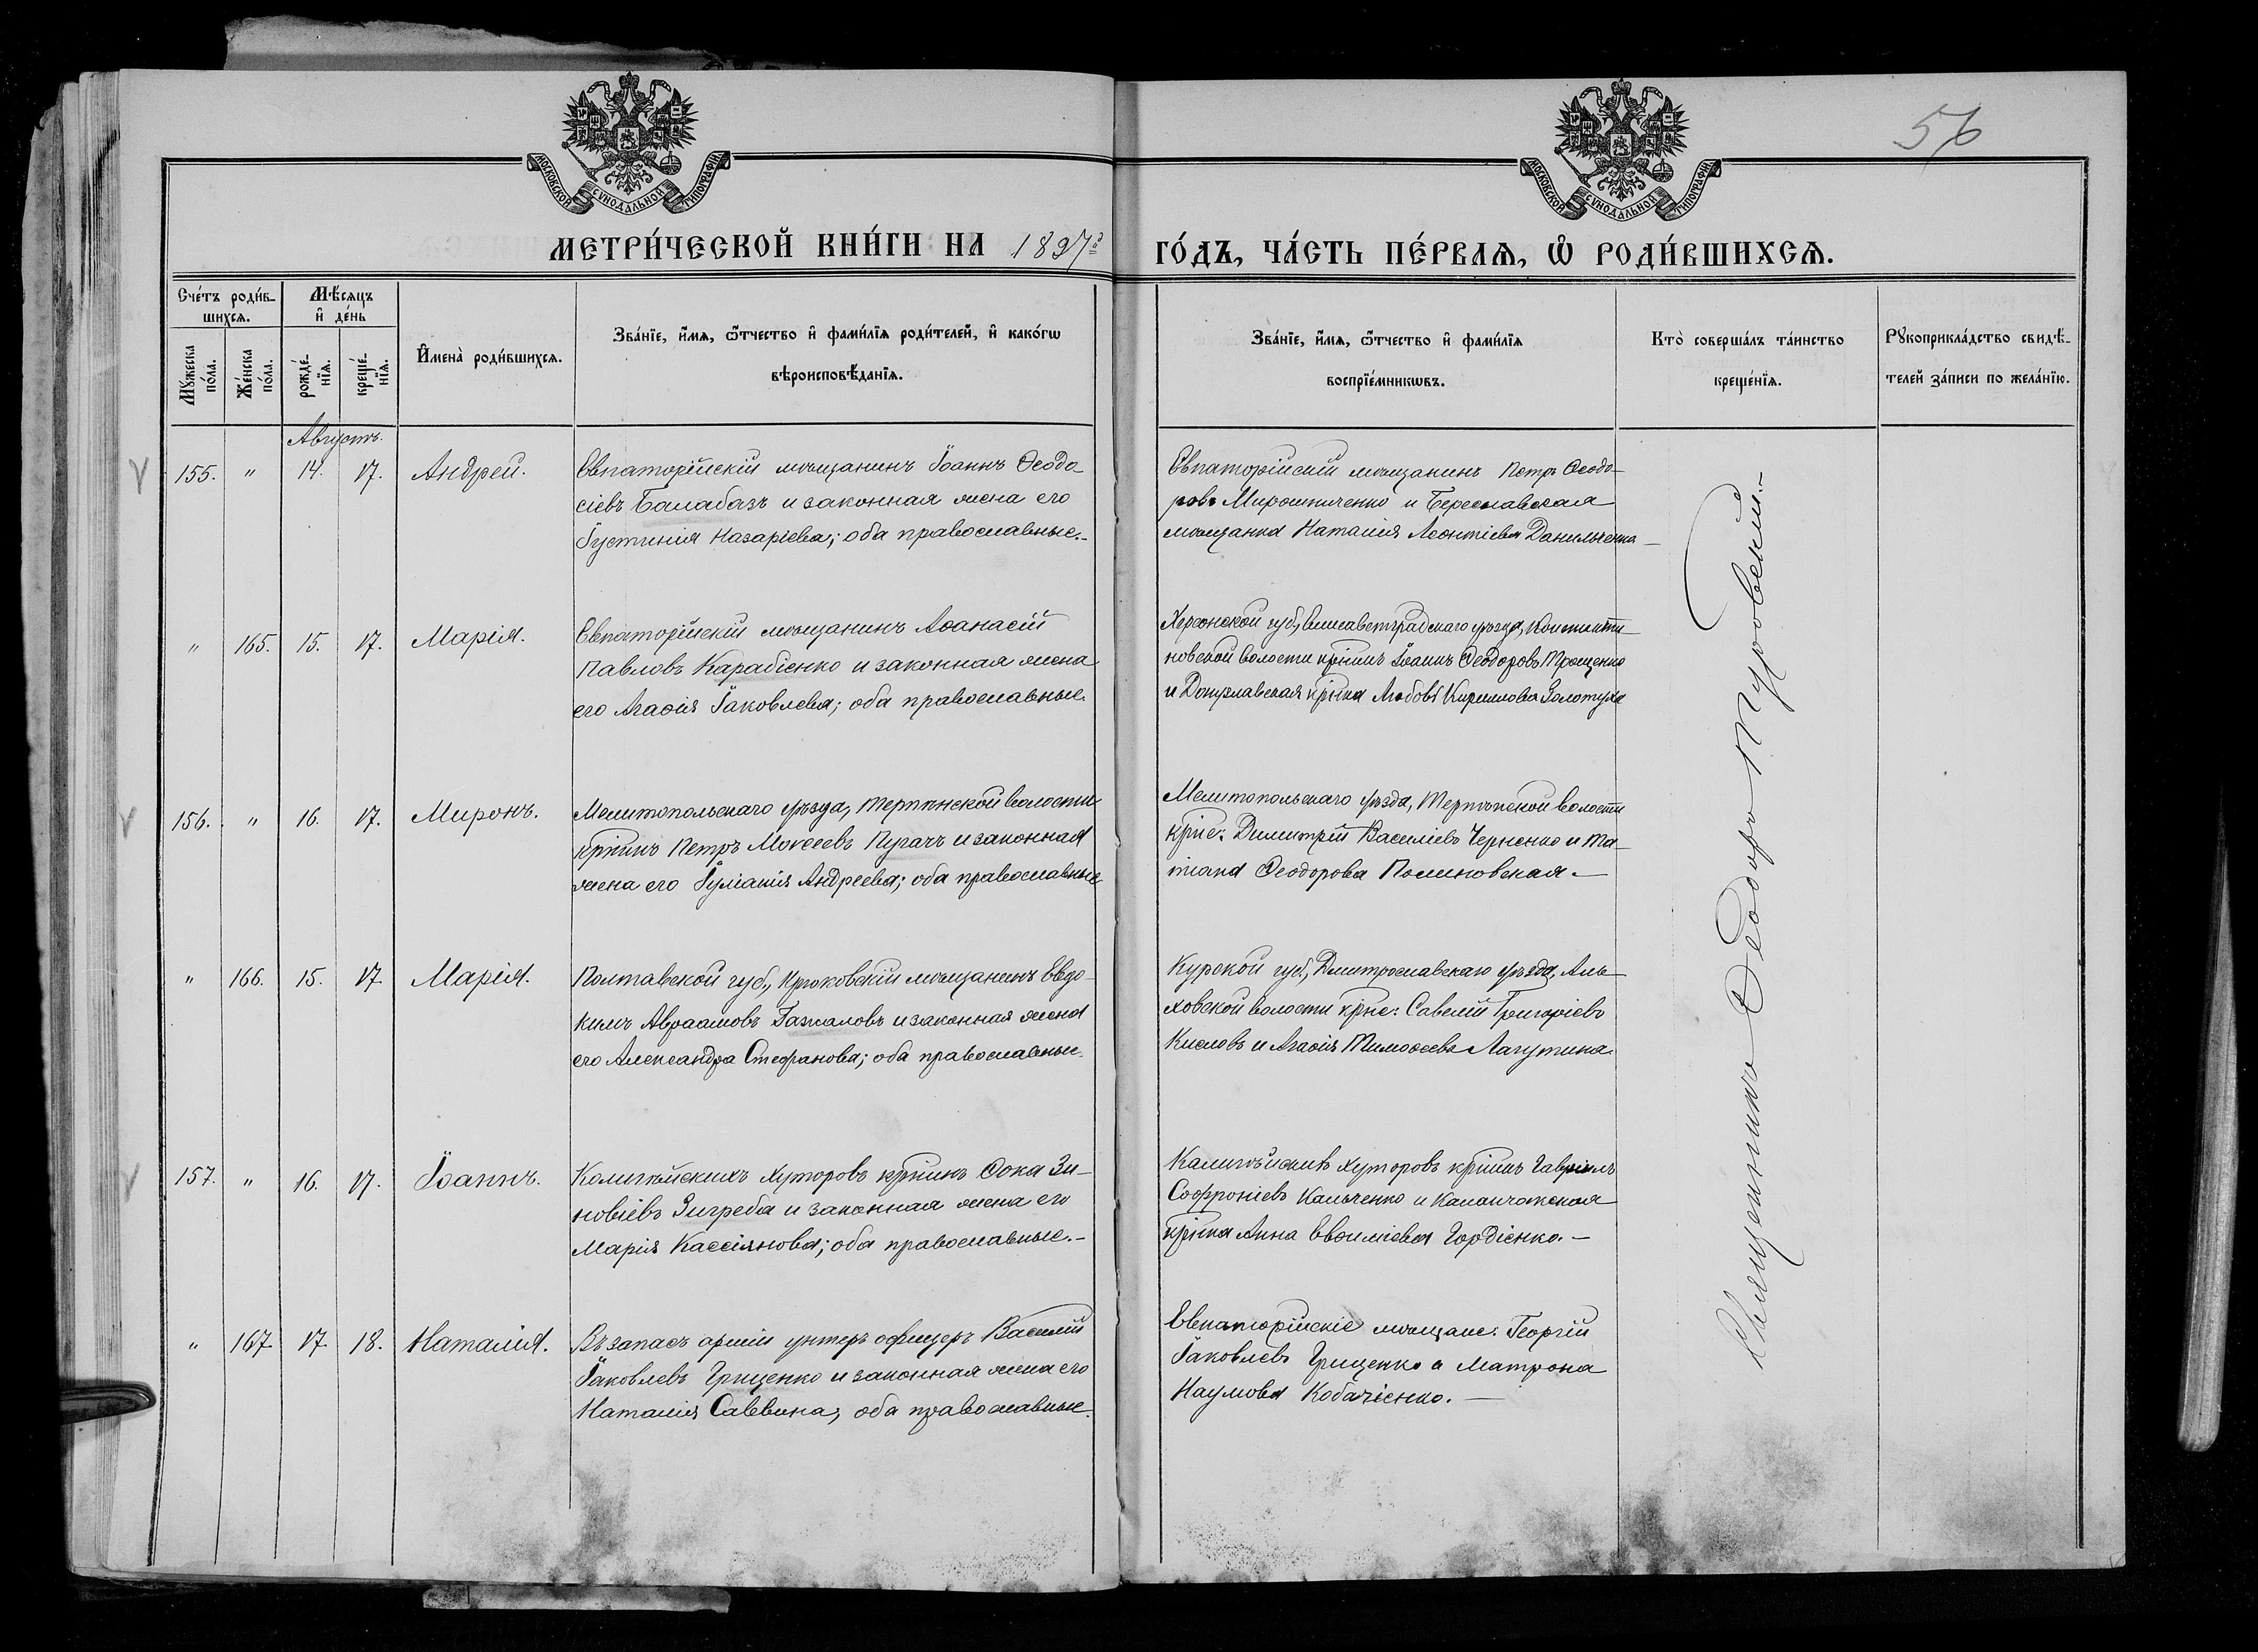 56
МОСКОВСКОЙ СѴНОДАЛЬНОЙ ТИПОГРАФІИ
МОСКОВСКОЙ СѴНОДАЛЬНОЙ ТИПОГРАФІИ
МЕТРИ́ЧЕСКОЙ КНИ́ГИ НА 1897й ГО́ДЪ, ЧА́СТЬ ПЕ́РВАѦ, Ѽ РОДИ́ВШИХСѦ.
Сче́тъ роди́в-
шихсѧ.
Мꙋжеска
по́ла.
Же́нска
по́ла.
Мѣ́сяцъ
и҆ де́нь
рожде́-
нїѧ.
креще́-
нїѧ.
И҆мена̀ роди́вшихсѧ.
Зва́нїе, и҆́мѧ, ѻ҆́тчество и҆ фами́лїѧ роди́телей, и҆ како́гѡ
вѣроисповѣ́данїѧ.
Зва́нїе, и҆́мѧ, ѻ҆́тчество и҆ фами́лїѧ
воспрїе́мникѡвъ.
Кто̀ соверша́лъ та́инство
креще́нїѧ.
Рꙋкоприкла́дство свидѣ́-
телей за́писи по жела́нїю.
Августъ.
155. " 14. 17. Андрей.
Евпаторійскій мѣщанинъ Іоаннъ Ѳеодо
сіевъ Балабазъ и законная жена его
Іустинія Назаріева; оба православные.-
Евпаторійскій мѣщанинъ Петръ Ѳеодо-
ровъ Мирошниченко и Береславская
мѣщанка Наталія Леонтіева Данильченко
" 165. 15. 17. Марія.
Евпаторійскій мѣщанинъ Аѳанасій
Павловъ Карабіенко и законная жена
его Агаѳія Іаковлева; оба православные.
Херсонской губ., Елисаветградскаго уѣзда, Константи-
новской волости кр͠нинъ Іоаннъ Ѳеодоровъ Трощенко
и Донузлавская кр͠нка Любовь Кириллова Золотуха
156. " 16. 17. Миронъ.
Мелитопольскаго уѣзда, Терпѣнской волости
кр͠нинъ Петръ Моѵсеевъ Пугачъ и законная
жена его Іуліанія Андреева; оба православные
Мелитопольскаго уѣзда, Терпѣнской волости
кр͠не: Димитрій Василіевъ Черненко и Та-
тіана Ѳеодорова Полиновская.-
" 166. 15. 17 Марія.
Полтавской губ., Крюковскій мѣщанинъ Евдо-
кимъ Авраамовъ Гажаловъ и законная жена
его Александра Стефанова; оба православные.
Курской губ., Дмитрославскаго уѣзда, Аль-
ховской волости кр͠не: Савелій Григоріевъ
Кисловъ и Агаѳія Тимоѳеева Лагутина.
157. " 16. 17. Іоаннъ.
Хуторовъ кр͠нинъ Ѳока Зи-
новіевъ Зигреба и законная жена его
Марія Кассіанова; оба православные.-
Хуторовъ кр͠нинъ Гавріилъ
Софроніевъ Кальченко и Каланчакская
кр͠нка Анна Евѳиміева Гордіенко.-
" 167 17 18. Наталія.
Въ запасѣ арміи унтеръ офицеръ Василій
Іаковлевъ Грищенко и законная жена его
Наталія Саввина; оба православные.
Евпаторійскіе мѣщане: Георгій
Іаковлевъ Грищенко и Матрона
Наумова Кобаченко.-
Священникъ Ѳеодоръ Туровскій.-